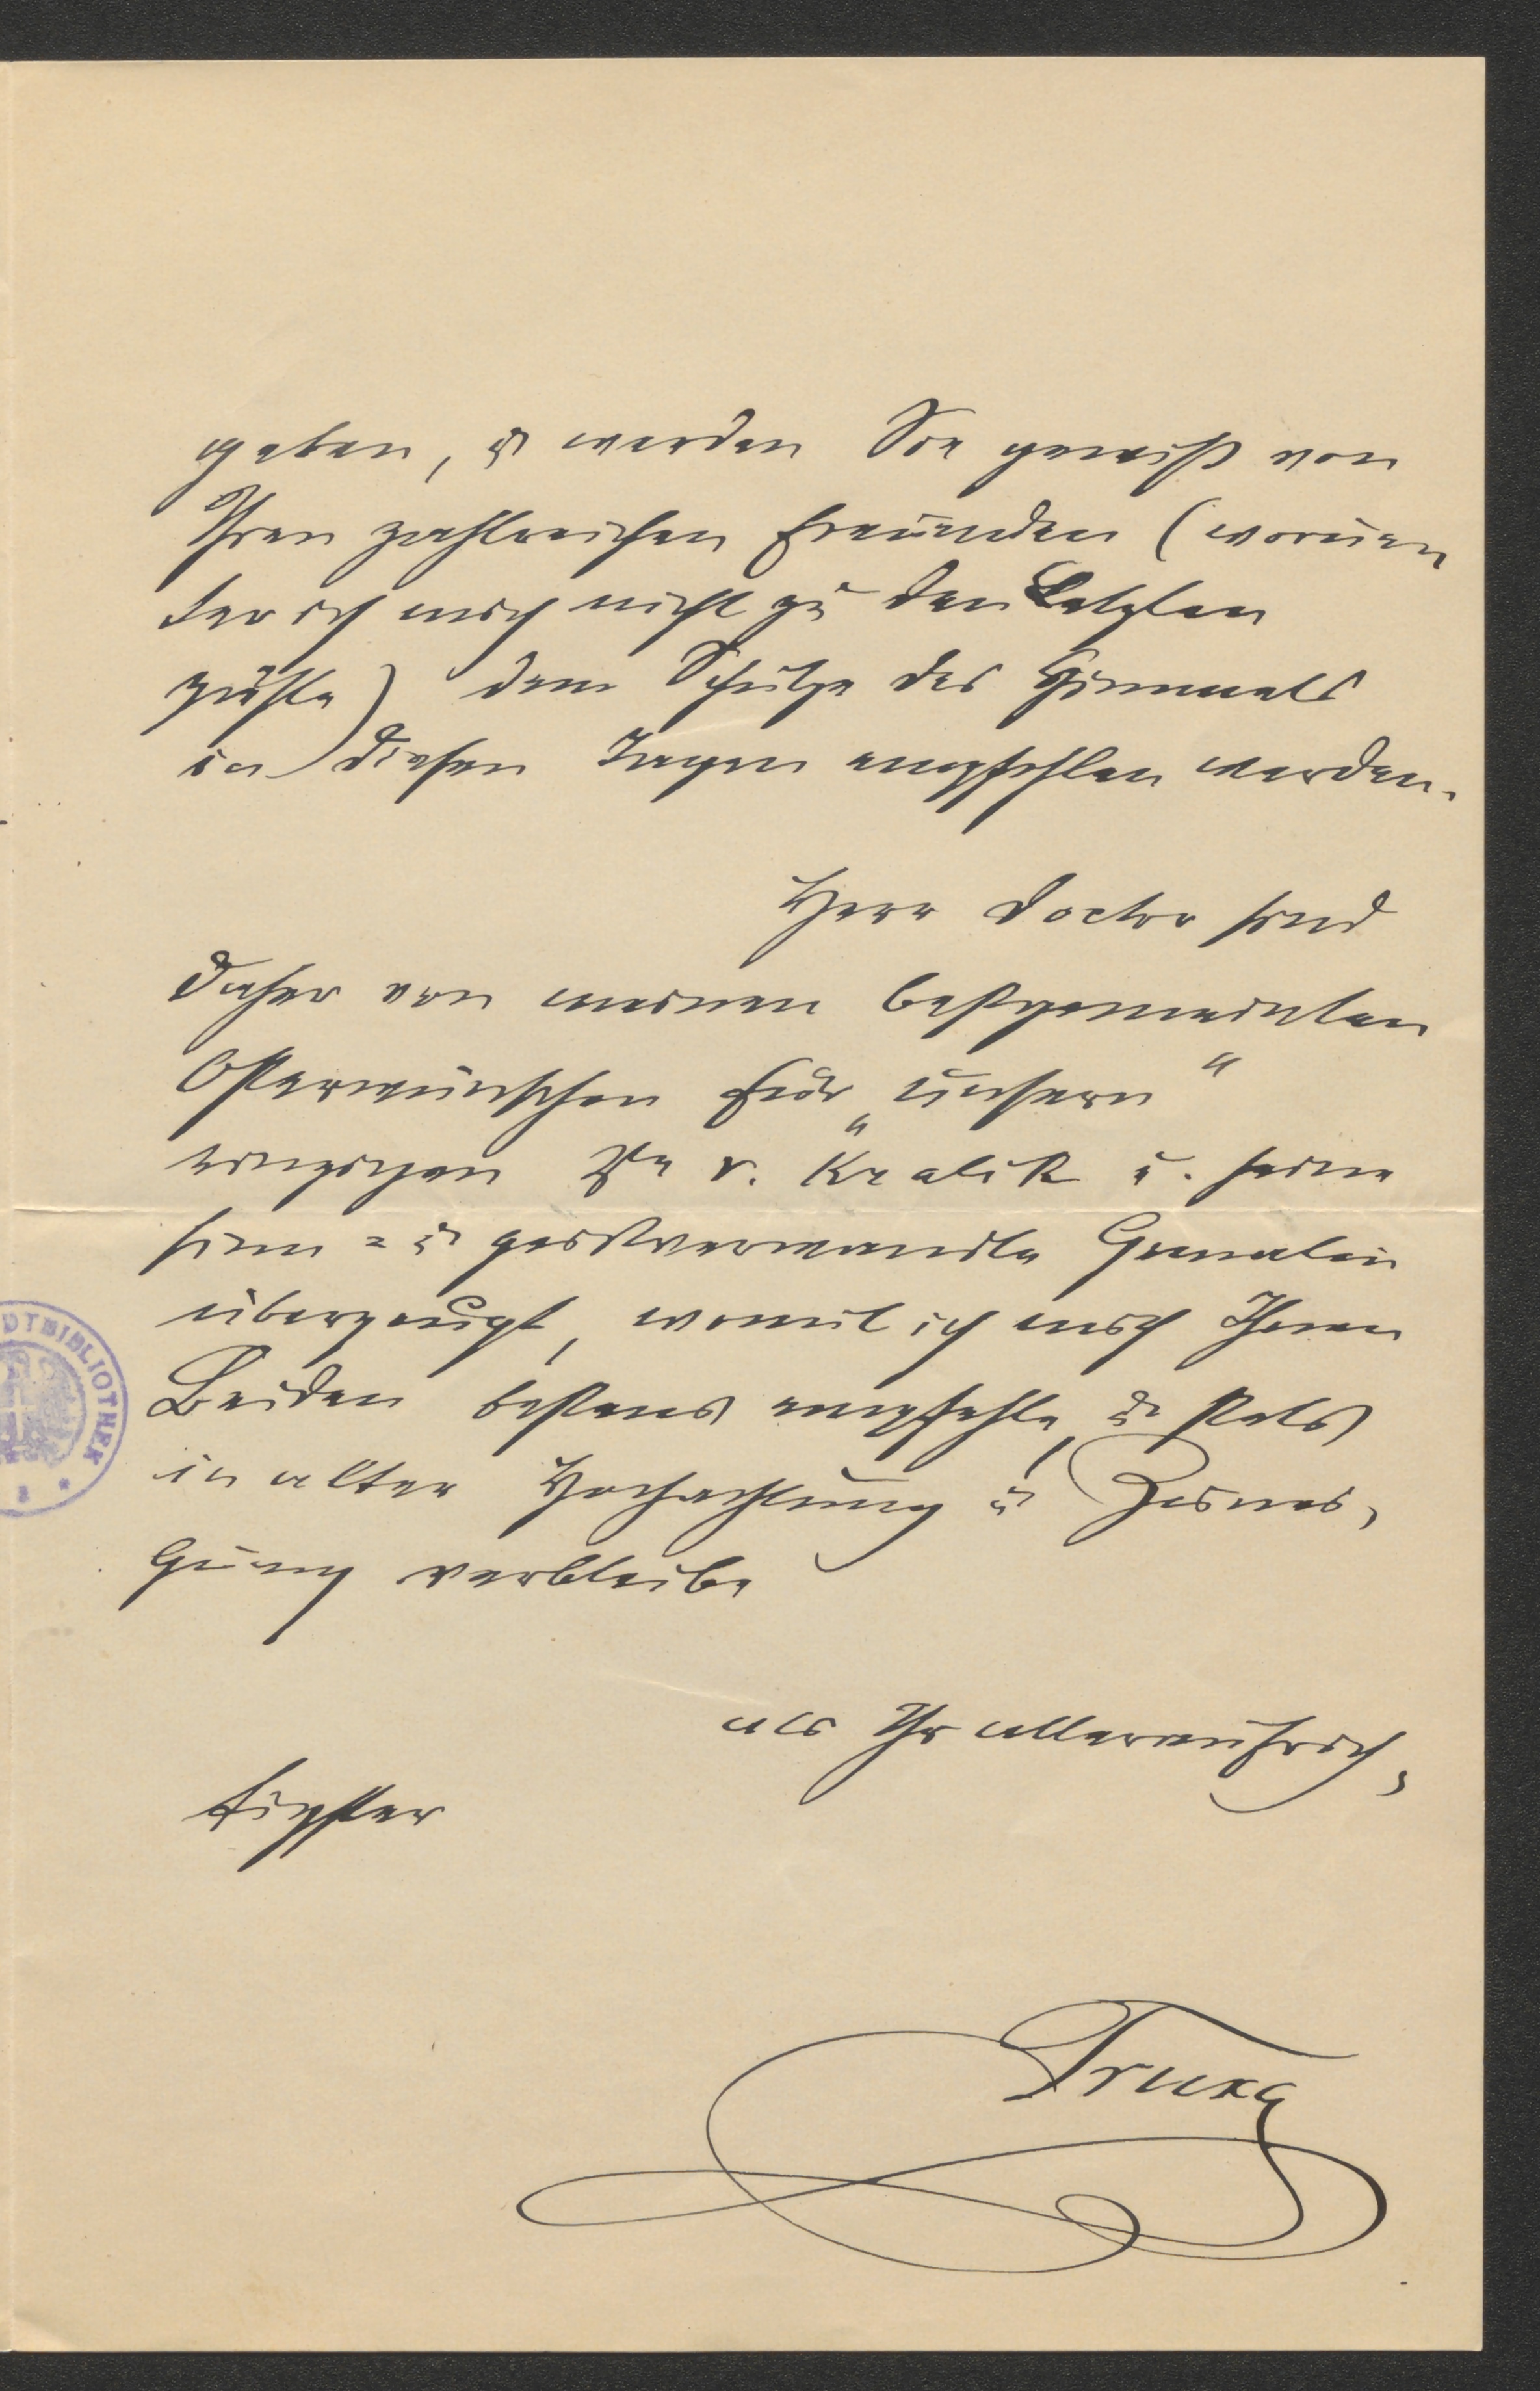 geben, u werden Sie gewiß von
Ihren zahlreichen Freunden (worun-
ter ich mich nicht zu den Letzten
zähle) dem Schutze des Himmels
in diesen Tagen empfohlen werden.
Herr Doctor sind
daher von meinen bestgemeinten
Osterwünschen für „unsern“
einzigen Dr v. Kralik u. seine
sinn= u geistverwandte Gemalin
überzeugt, womit ich mich Ihnen
Beiden bestens empfehle, u stets
in alter Hochachtung u Zunei-
gung verbleibe
als Ihr alleraufrich-
tigster
Truxa
DTBIBLIOTHEK